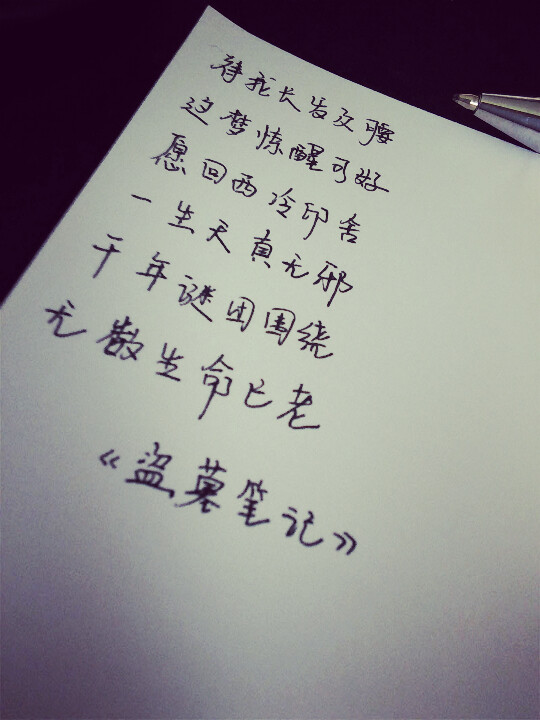 待我长发及腰
这梦惊醒可好
愿回西冷印舍
一生天真无邪
千年谜团围绕
无数生命已老
《盗墓笔记》